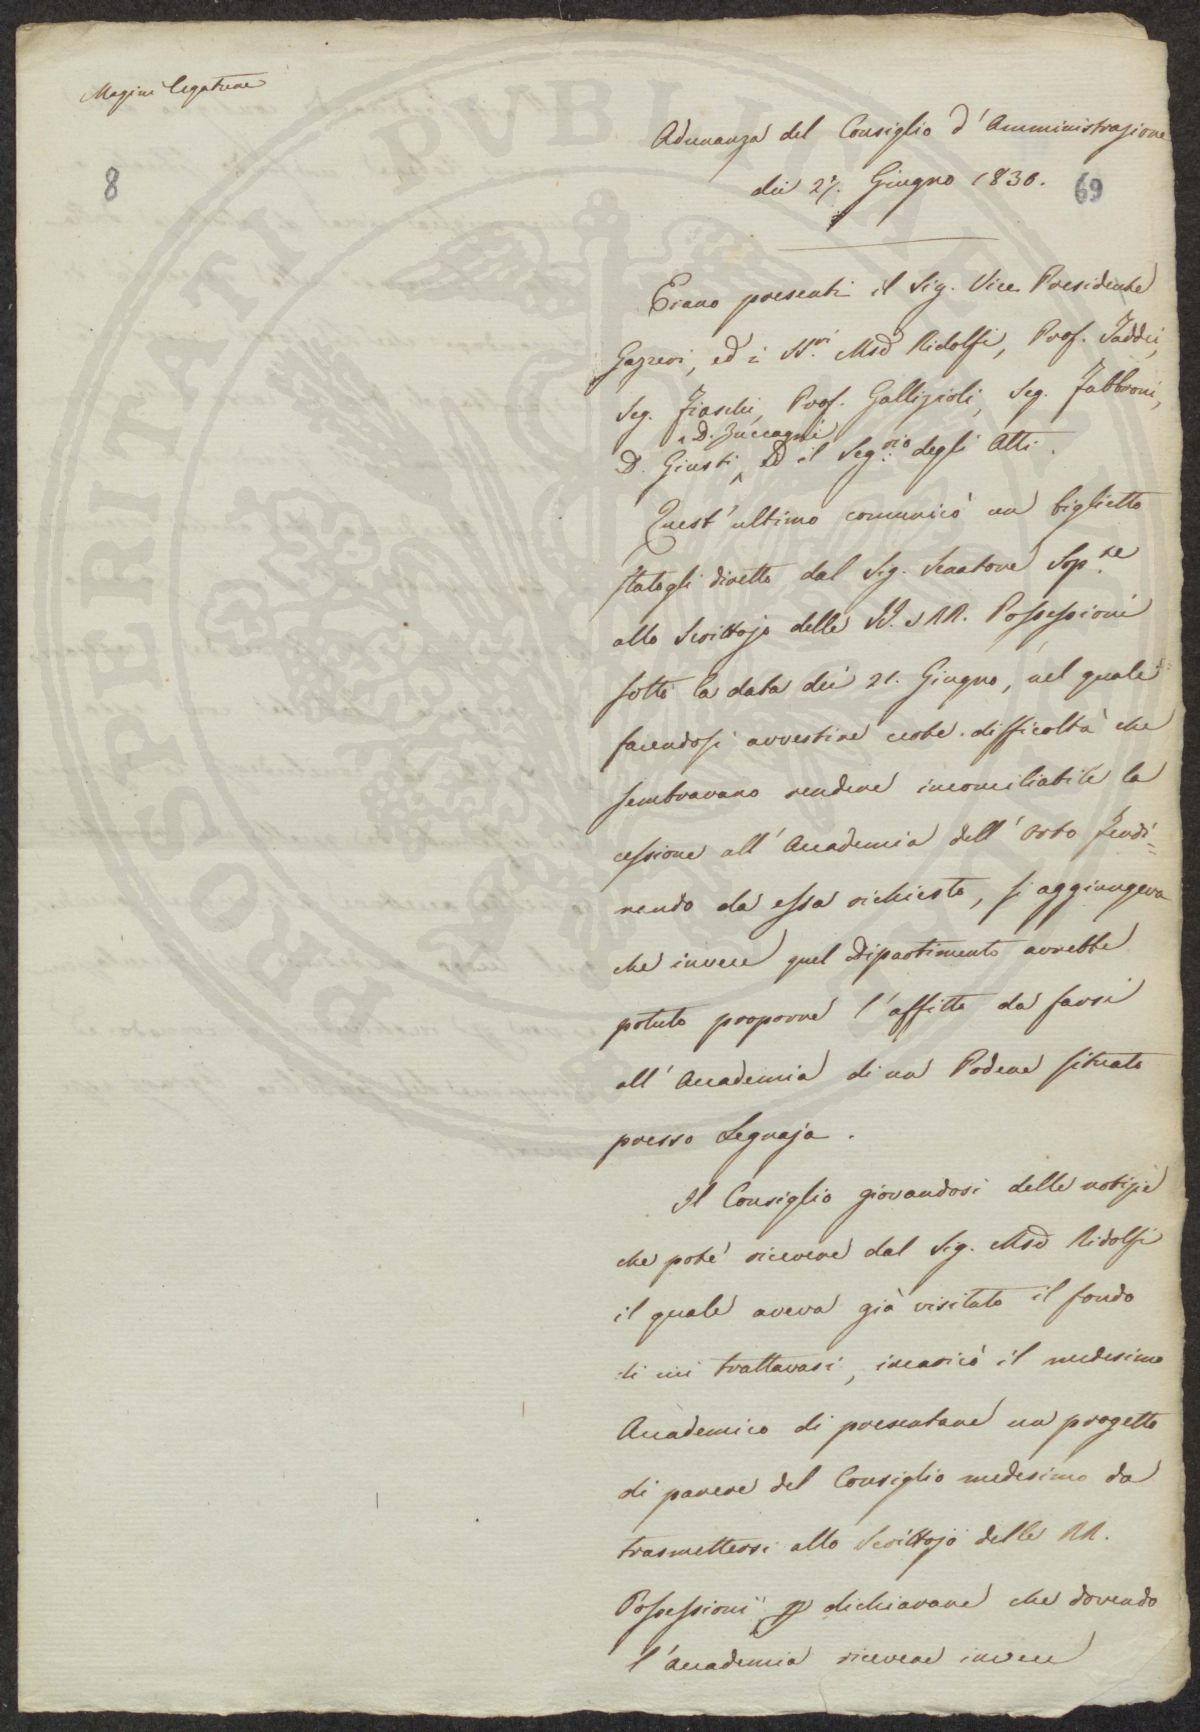 Magini legature
8
Adunanza del Consiglio d'Amministrazione
dei 27. Giugno 1830.
69
Erano presenti il Sig. Vice Presidente
Gazzeri, ed i SS.ri Msė Ridolfi, Prof. Taddei,
Seg. Fiaschi, Prof. Gallizioli, Seg. Fabbroni,
D. Zuccagni
D. Giusti, ed il Seg.rio degli Atti.
Quest'ultimo comunicò un biglietto
statogli diretto dal Sig. Senatore Sop.te
allo Scrittojo delle II. e RR. Possessioni
sotto la data dei 21. Giugno, nel quale
facendosi avvertire certe difficoltà che
sembravano rendere inconciliabile la
cessione all'Accademia dell'Orto Fendi=
rendo da essa richiesto, si aggiungeva
che invece quel Dipartimento avrebbe
potuto proporre l'affitto da farsi
all'Accademia di un Podere situato
presso Legnaja.
Il Consiglio giovandosi delle notizie
che poté ricevere dal Sig. Msė Ridolfi
il quale aveva già visitato il fondo
di cui trattavasi, incaricò il medesimo
Accademico di presentare un progetto
di parere del Consiglio medesimo da
trasmettersi allo Scrittojo delle RR.
Possessioni p dichiarare che dovendo
l'Accademia ricevere invece
PROSPERITATI PUBLICAE